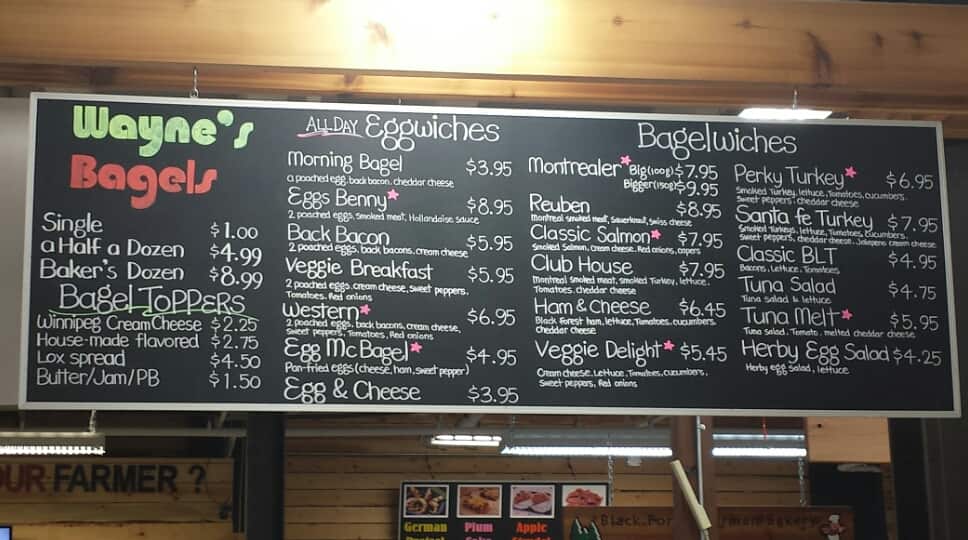 Wayne's
Bagels
Single $1.00
a Half a Dozen $4.99
Baker's Dozen $8.99
Bagel Toppers
Winnipeg Cream Cheese $2.25
House-made flavored $2.75
Lox spread $4.50
Butter/Jam/PB $1.50
ALL-DAY Eggwiches
Morning Bagel $3.95
a poached egg, back bacon, cheddar cheese
Eggs Benny $8.95
2 poached eggs, smoked meat, Hollandaise sauce
Back Bacon $5.95
2 poached eggs, back bacons, cream cheese
Veggie Breakfast $5.95
2 poached eggs, cream cheese, sweet peppers,
Tomatoes, Red onions
Western $6.95
2 poached eggs, back bacons, cream cheese,
sweet peppers, Tomatoes, Red onions
Egg McBagel $4.95
Pan-fried eggs (cheese, ham, sweet pepper)
Egg & Cheese $3.95
Bagelwiches
Montrealer Big(100g) $7.95
Bigger(150g) $9.95
Reuben $8.95
Montreal smoked meat, sauerkraut, swiss cheese
Classic Salmon $7.95
Smoked Salmon, cream cheese, Red onions, capers
Club House $7.95
Montreal smoked meat, smoked Turkey, lettuce,
Tomatoes, cheddar cheese
Ham & Cheese $6.45
Black Forest ham, lettuce, Tomatoes, cucumbers,
cheddar cheese
Veggie Delight $5.45
Cream cheese, Lettuce, Tomatoes, cucumbers,
Sweet peppers, Red onions
Perky Turkey $6.95
Smoked Turkey, lettuce, Tomatoes, cucumbers,
Sweet peppers, cheddar cheese
Santa fe Turkey $7.95
Smoked Turkeys, lettuce, Tomatoes, cucumbers,
Sweet peppers, cheddar cheese, Jalapeno cream cheese
Classic BLT $4.95
Bacons, Lettuce, Tomatoes
Tuna Salad $4.75
Tuna salad & lettuce
Tuna Melt $5.95
Tuna salad, Tomato, melted cheddar cheese
Herby Egg Salad $4.25
Herby egg Salad, lettuce
OUR FARMER ?
German
Plum
Apple
Black For
Bakery